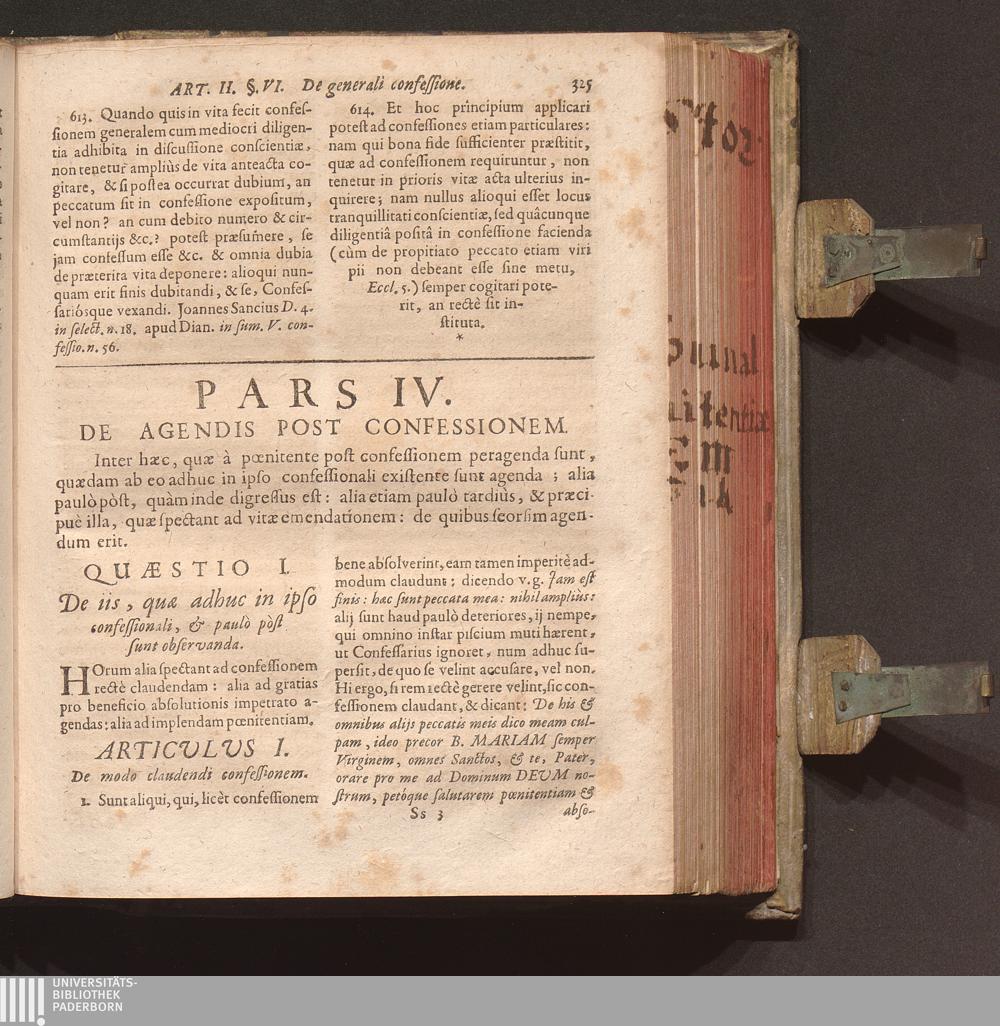 ART. II. §. VI. De generali confeſſione. 325
613. Quando quis in vita fecit confeſ-
ſionem generalem cum mediocri diligen-
tia adhibita in diſcuſſione conſcientiæ,
non tenetur ampliùs de vita anteacta co-
gitare, & ſi poſtea occurrat dubium, an
peccatum ſit in confeſſione expoſitum,
vel non? an cum debito numero & cir-
cumſtantijs &c.? poteſt præſumere, ſe
jam confeſſum eſſe &c. & omnia dubia
de præterita vita deponere: alioqui nun-
quam erit finis dubitandi, & ſe, Confeſ-
ſariósque vexandi. Joannes Sancius D. 4.
in ſelect. n. 18. apud Dian. in ſum. V. con-
feſſio. n. 56.
614. Et hoc principium applicari
poteſt ad confeſſiones etiam particulares:
nam qui bona fide ſufficienter præſtitit,
quæ ad confeſſionem requiruntur, non
tenetur in prioris vitæ acta ulterius in-
quirere; nam nullus alioqui eſſet locus
tranquillitati conſcientiæ, ſed quâcunque
diligentiâ poſitâ in confeſſione facienda
(cùm de propitiato peccato etiam viri
pii non debeant eſſe ſine metu,
Eccl. 5.) ſemper cogitari pote-
rit, an rectè ſit in-
ſtituta.
*
PARS IV.
DE AGENDIS POST CONFESSIONEM.
Inter hæc, quæ à pœnitente poſt confeſſionem peragenda ſunt,
quædam ab eo adhuc in ipſo confeſſionali exiſtente ſunt agenda; alia
paulò pòſt, quàm inde digreſſus eſt: alia etiam paulò tardiùs, & præci-
puè illa, quæ ſpectant ad vitæ emendationem: de quibus ſeorſim agen-
dum erit.
QUÆSTIO I.
De iis, quæ adhuc in ipſo
confeſſionali, & paulò pòſt
ſunt obſervanda.
HOrum alia ſpectant ad confeſſionem
rectè claudendam: alia ad gratias
pro beneficio abſolutionis impetrato a-
gendas: alia ad implendam pœnitentiam.
ARTICULUS I.
De modo claudendi confeſſionem.
1. Sunt aliqui, qui, licèt confeſſionem
bene abſolverint, eam tamen imperitè ad-
modum claudunt: dicendo v. g. Jam eſt
finis: hæc ſunt peccata mea: nihil ampliùs:
alij ſunt haud paulò deteriores, ij nempe,
qui omnino inſtar piſcium muti hærent,
ut Confeſſarius ignoret, num adhuc ſu-
perſit, de quo ſe velint accuſare, vel non.
Hi ergo, ſi rem rectè gerere velint, ſic con-
feſſionem claudant, & dicant: De his &
omnibus alijs peccatis meis dico meam cul-
pam, ideo precor B. MARIAM ſemper
Virginem, omnes Sanctos, & te, Pater,
orare pro me ad Dominum DEUM no-
ſtrum, petóque ſalutarem pœnitentiam &
Ss 3 abſo-
UNIVERSITÄTS-
BIBLIOTHEK
PADERBORN